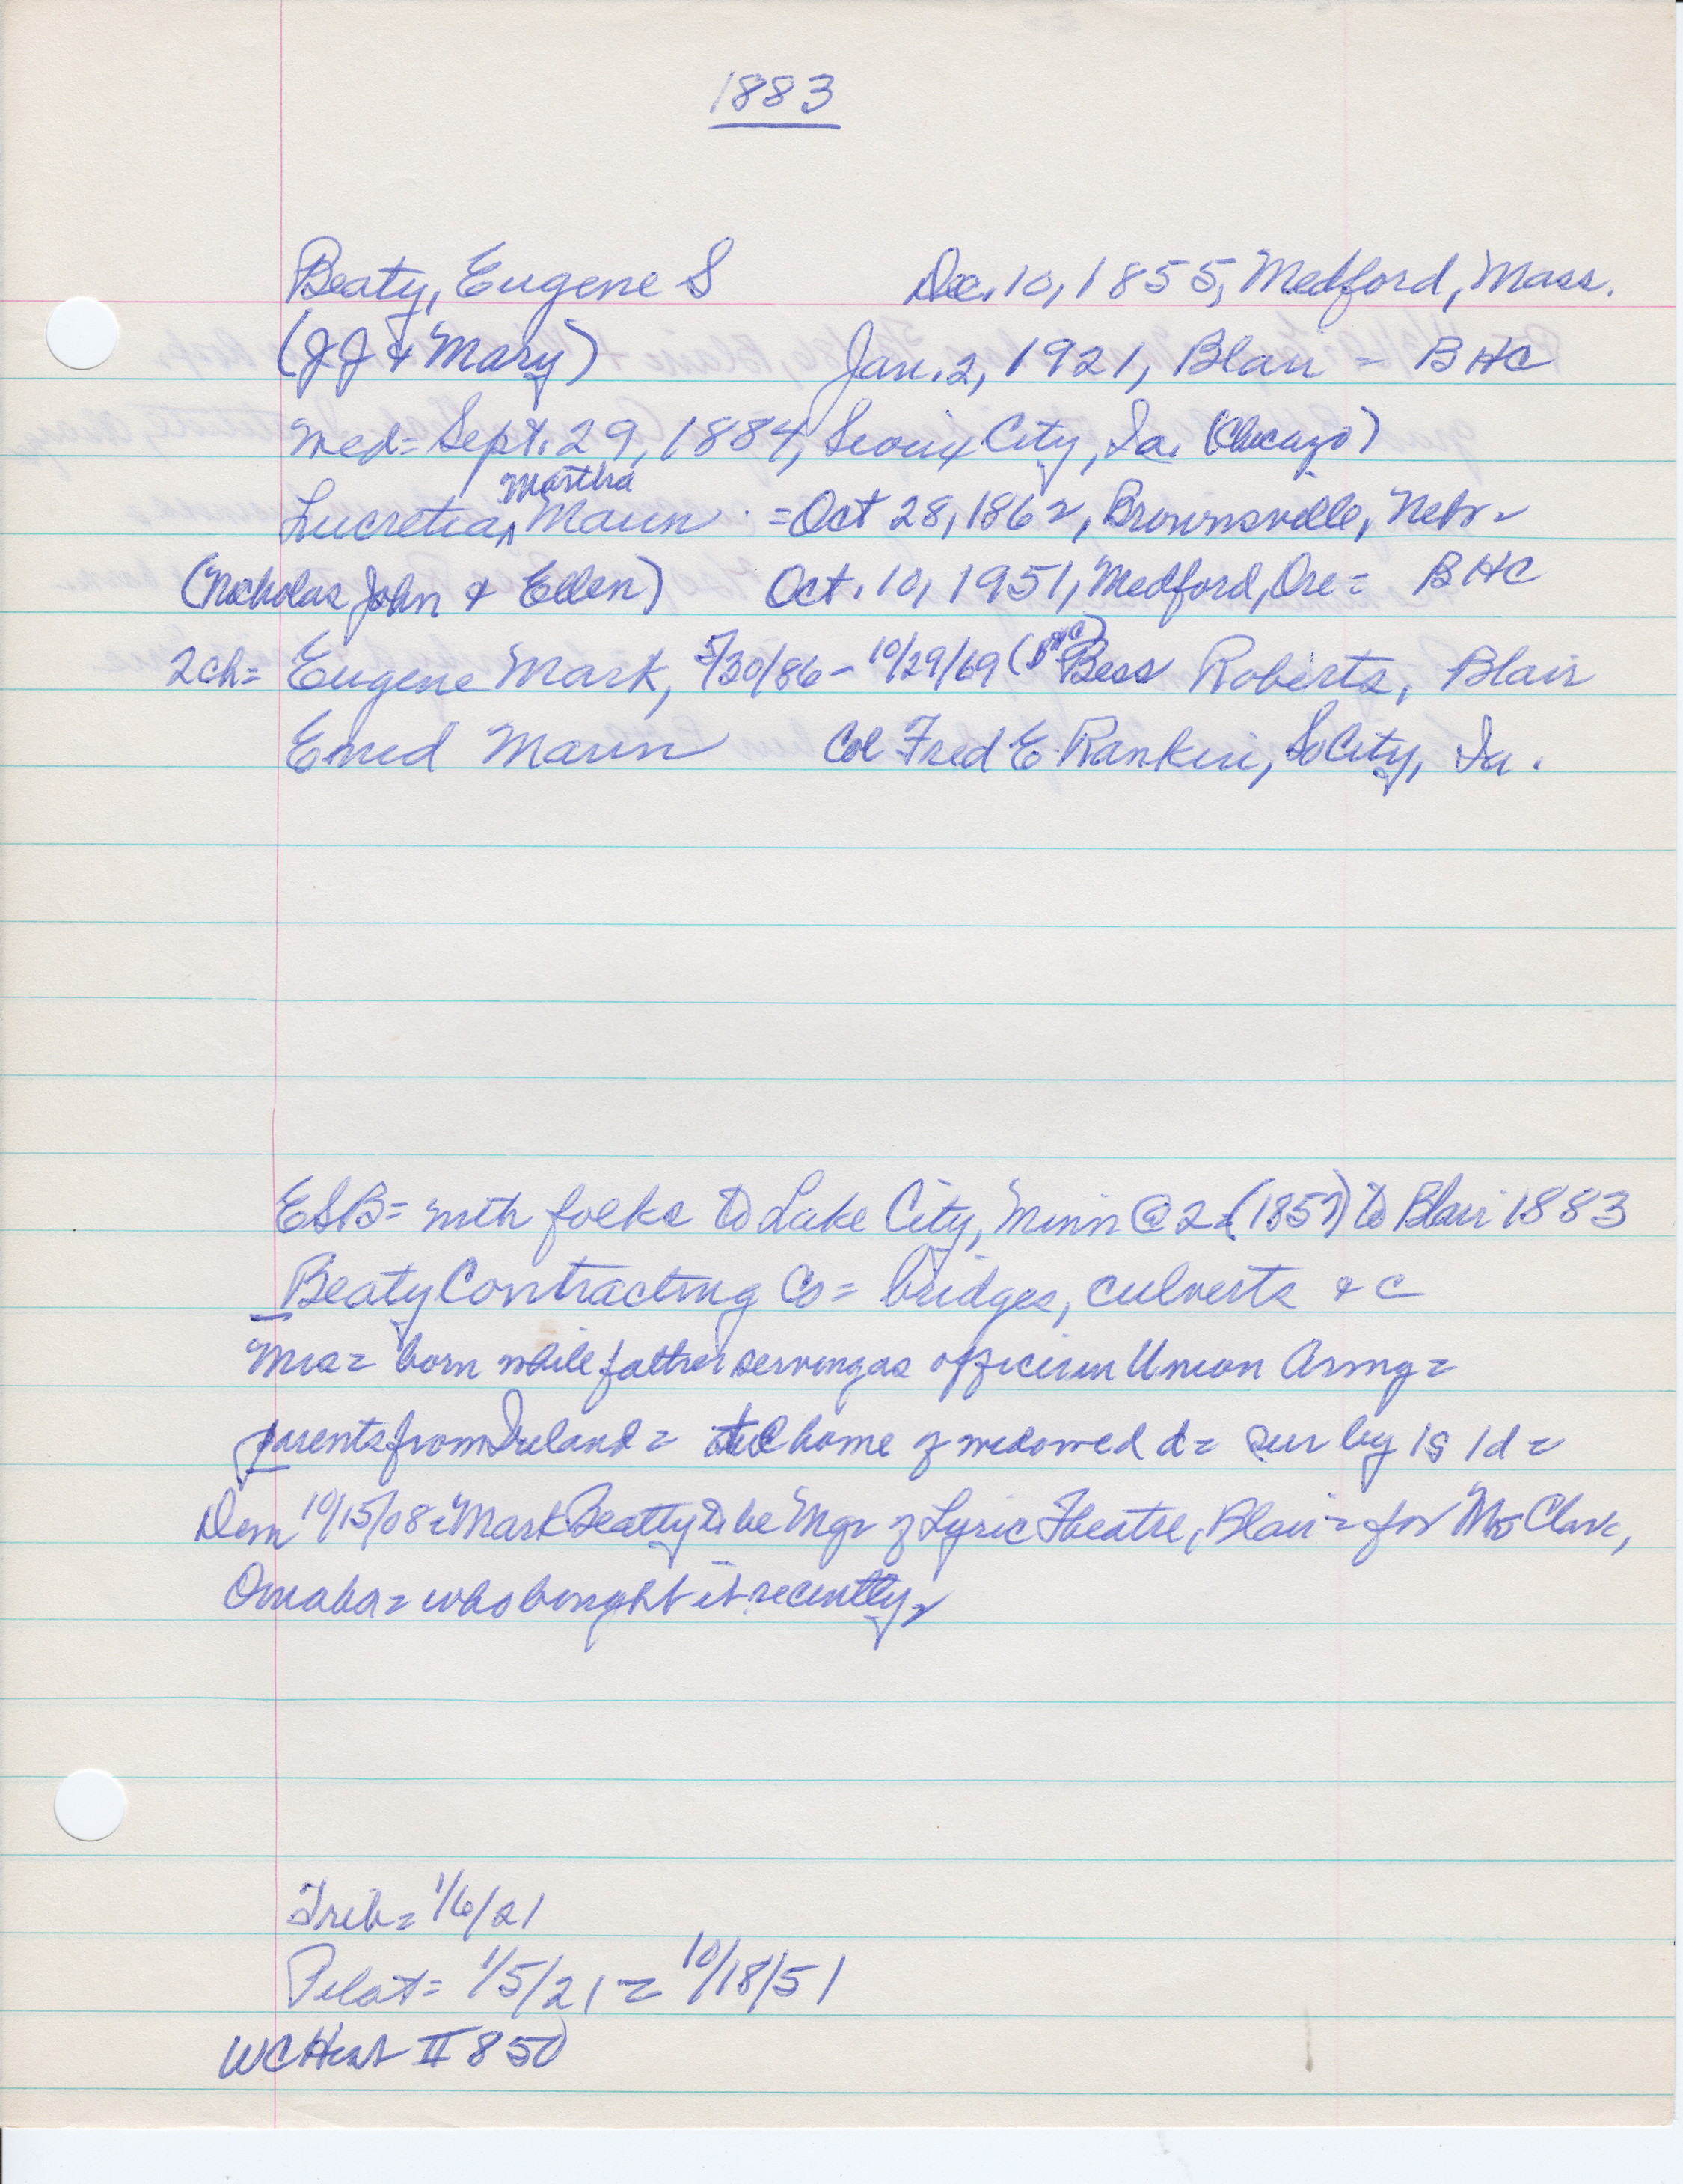 1883
Beaty, Eugene S Dec. 10, 1855, Medford, Mass.
(JJ & Mary) Jan. 2, 1921, Blair = BHC
Med= Sept. 29, 1884, Sioux City, Ia. (Chicago)
Martha
Lucretia ^ Mann = Oct 28, 1862, Brownsville, Nebr =
(Nicholas John & Ellen) Oct. 10, 1951, Medford, Ore = BHC
2ch= Eugene Mark, 5/30/86 - 10/29/69 (BHC) Bess Roberts, Blair
Enid Mann Col Fred E Rankin, So City, Ia.
ESB= with folks to Lake City, Minn @ 2 = (1857) to Blair 1883
Beaty Contracting Co = bridges, culverts & c
Mrs = born while father serving as officer in Union Army =
parents from Ireland = at home of widowed d = sur by 1s 1d =
Dem 10/15/08 = Mark Beatty to be Mgr of Lyric Theatre, Blair = for Clark,
Omaha = who bought it recently =
Trib = 1/6/21
Pilot = 1/5/21 = 10/18/51
WCHist II 850